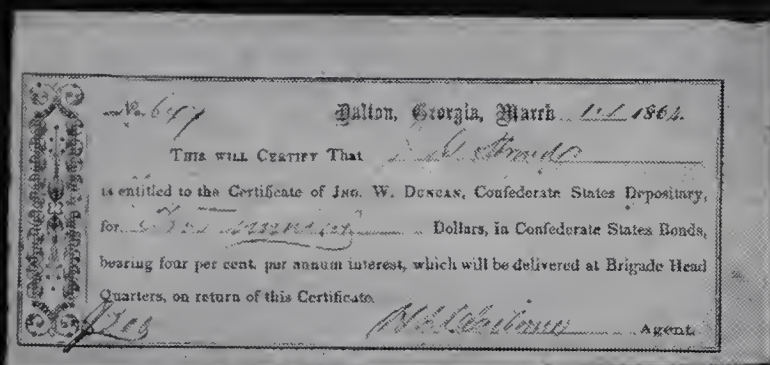 No. 647 Dalton, Georgia, March 1st 1864.
THIS WILL CERTIFY That
is entitled to the Certificate of JNO. W. DUNCAN, Confederate States Depositary,
for Hundred Dollars, in Confederate States Bonds,
bearing four per cent. per annum interest, which will be delivered at Brigade Head
Quarters, on return of this Certificate.
Agent.